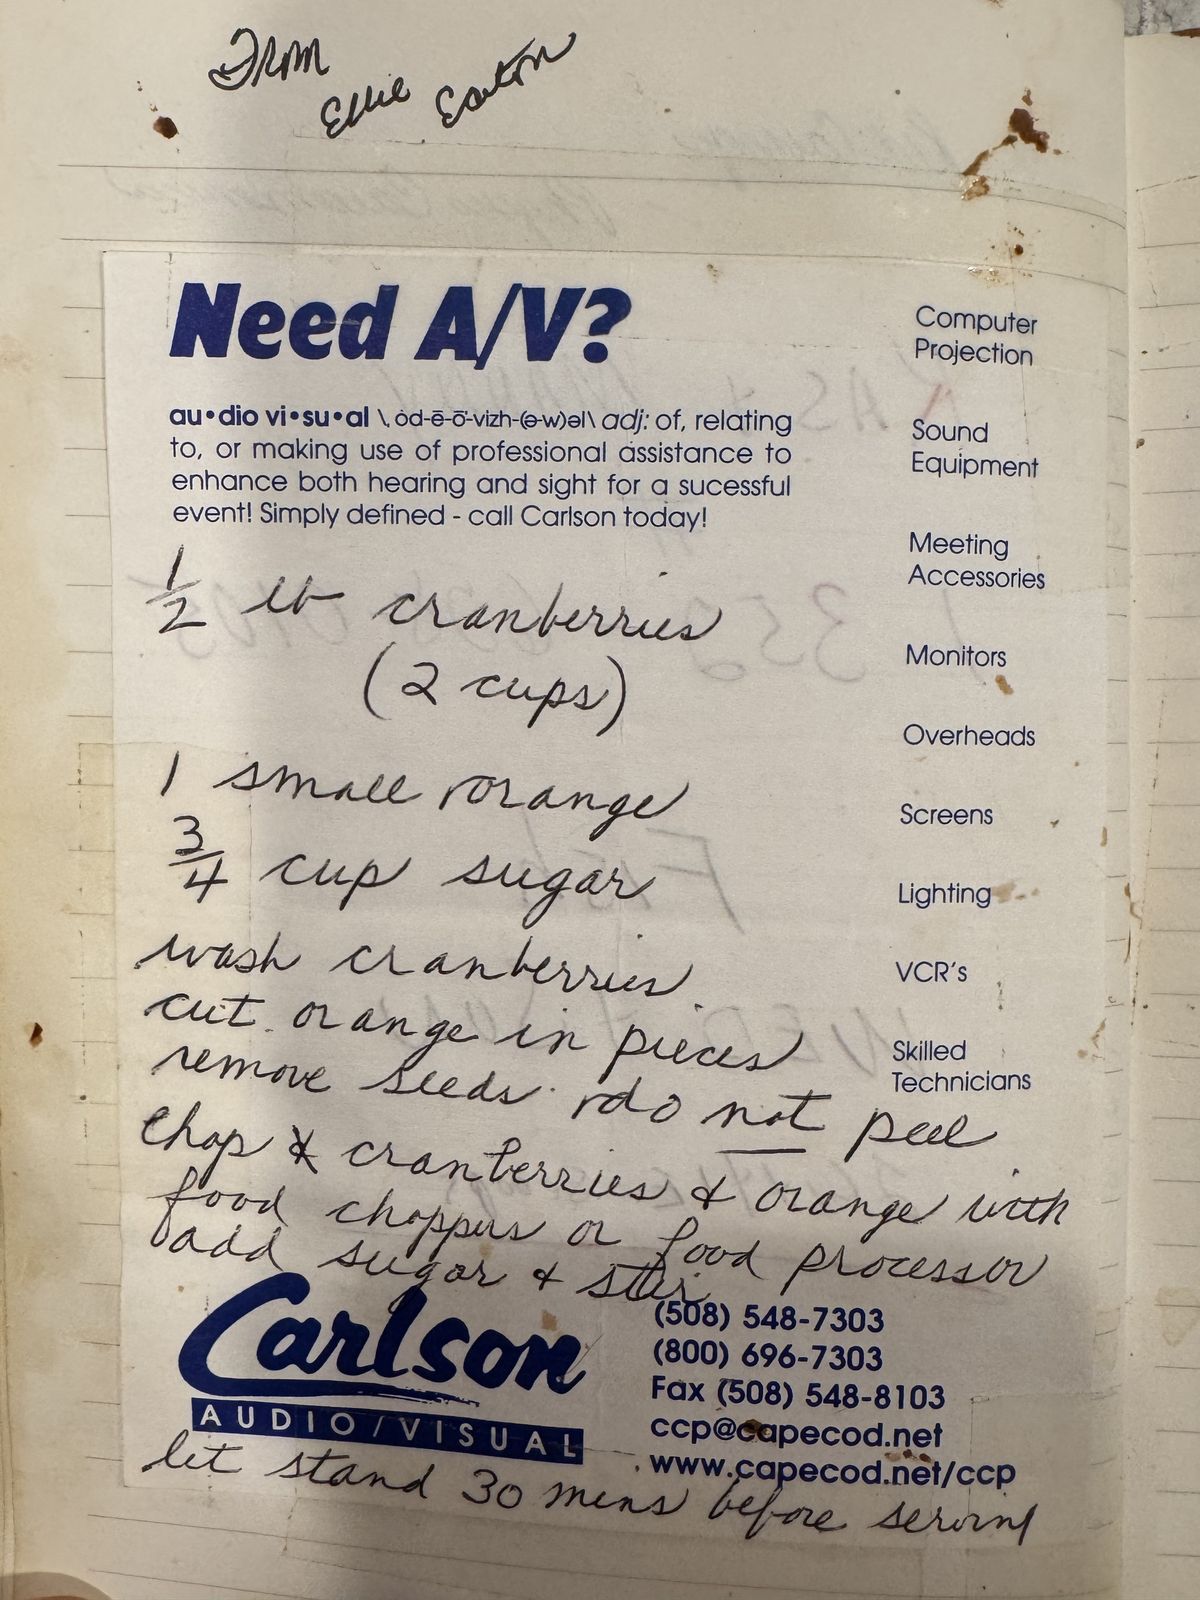 From
Ellie Eaton
Need A/V?
au•dio vi•su•al \ˌòd-ē-ō-ˈvizh-(ə-w)əl\ adj: of, relating
to, or making use of professional assistance to
enhance both hearing and sight for a sucessful
event! Simply defined - call Carlson today!
Computer
Projection
Sound
Equipment
Meeting
Accessories
Monitors
Overheads
Screens
Lighting
VCR's
Skilled
Technicians
1/2 lb cranberries
(2 cups)
1 small orange
3/4 cup sugar
wash cranberries.
cut orange in pieces
remove seeds. do not peel
chop & cranberries & orange with
food choppers or food processor
add sugar & stir
Carlson
AUDIO/VISUAL
(508) 548-7303
(800) 696-7303
Fax (508) 548-8103
ccp@capecod.net
www.capecod.net/ccp
let stand 30 mins before serving